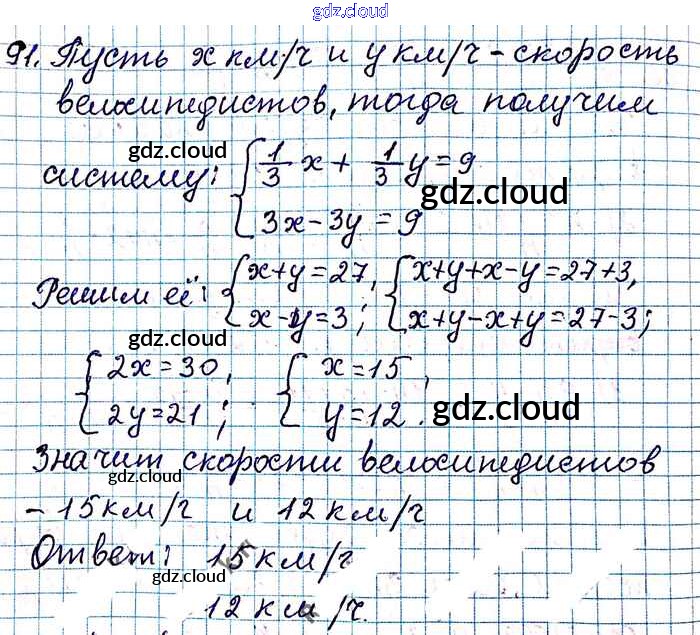 gdz.cloud
91. Пусть x км/ч и y км/ч - скорость
велосипедистов, тогда получим
gdz.cloud
систему: { 1/3 x + 1/3 y = 9
gdz.cloud
3x - 3y = 9
Решим её: { x+y=27, { x+y+x-y=27+3,
x-y=3; x+y-x+y=27-3;
gdz.cloud
{ 2x=30, { x=15,
2y=21; y=12.
gdz.cloud
Значит скорости велосипедистов
gdz.cloud
- 15 км/ч и 12 км/ч
Ответ: 15 км/ч
gdz.cloud
12 км/ч.
gdz.cloud